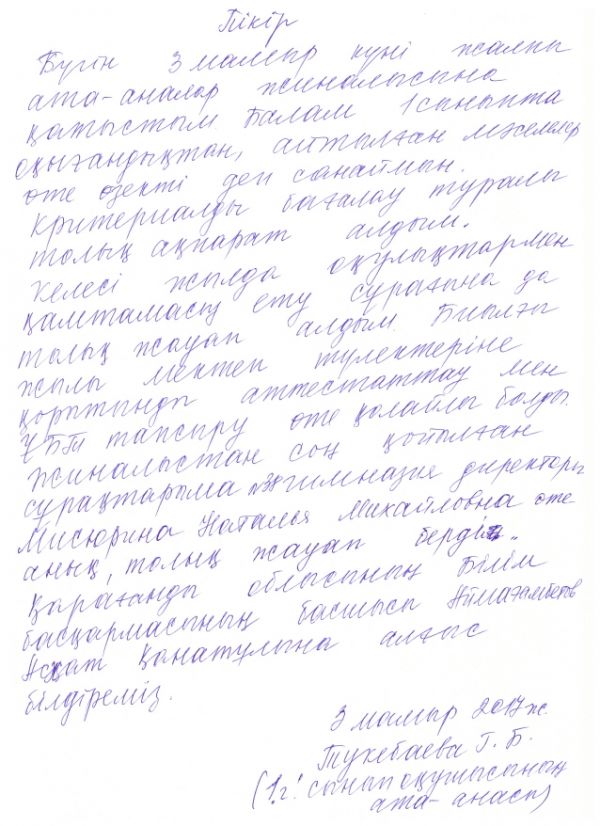 Пікір
Бүгін 3 мамыр күні жалпы
ата-аналар жиналысына
қатыстым. Балам 1 сыныпта
оқығандықтан, айтылған мәселелер
өте өзекті деп санаймын.
Критериалды бағалау туралы
толық ақпарат алдым.
Келесі жылда оқулықтармен
қамтамасыз ету сұрағына да
толық жауап алдым. Биылғы
жылы мектеп түлектеріне
қорытынды аттестаттау мен
ҰБТ тапсыру өте қолайлы болды.
Жиналыстан соң қойылған
сұрақтарыма №38 гимназия директоры
Мисюрина Наталья Михайловна өте
анық, толық жауап берді.
Қарағанды облысының Білім
басқармасының басшысы Аймағамбетов
Асхат Қанатұлына алғыс
білдіреміз.
3 мамыр 2017ж.
Тукебаева Г. Б.
(1 "г" сынып оқушысының
ата-анасы)